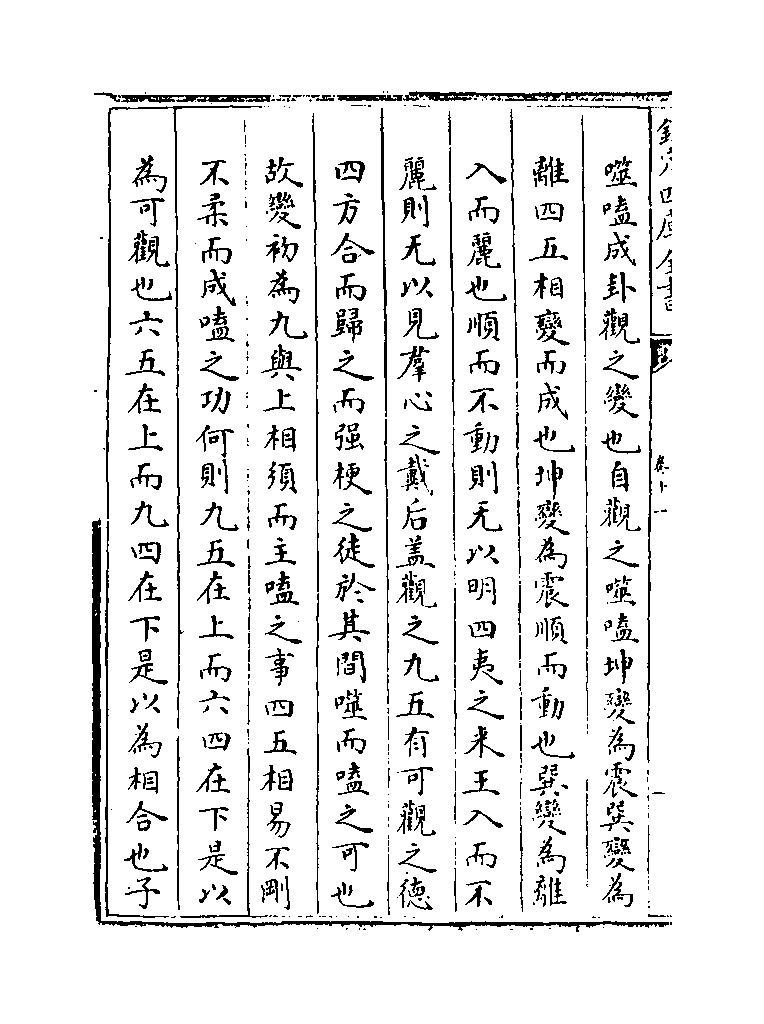 欽定四庫全書
卷十一
噬嗑成卦觀之變也自觀之噬嗑坤變為震巽變為
離四五相變而成也坤變為震順而動也巽變為離
入而麗也順而不動則无以明四夷之来王入而不
麗則无以見羣心之戴后盖觀之九五有可觀之德
四方合而歸之而强梗之徒於其間噬而嗑之可也
故變初為九與上相須而主嗑之事四五相易不剛
不柔而成嗑之功何則九五在上而六四在下是以
為可觀也六五在上而九四在下是以為相合也子